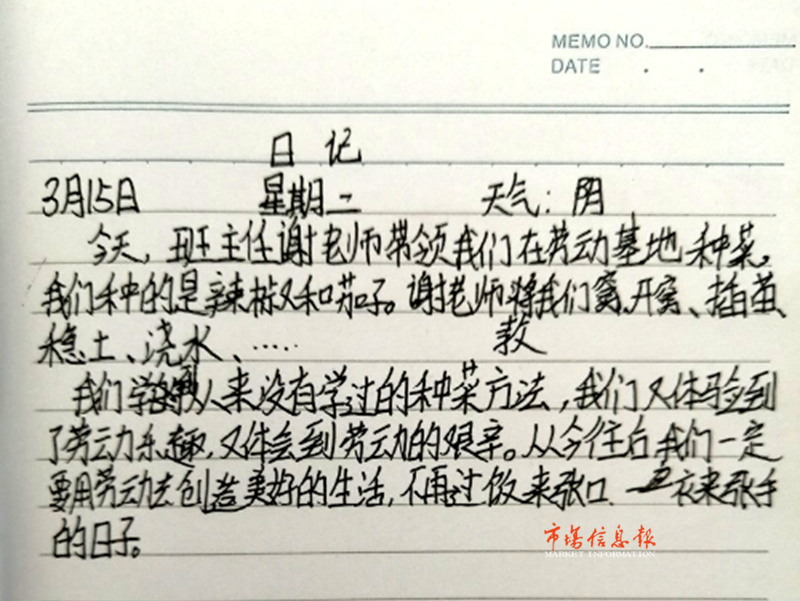 MEMO NO.
DATE . .
日记
3月15日 星期二 天气：阴
今天，班主任谢老师带领我们在劳动基地种菜。
我们种的是辣椒和茄子。谢老师将我们窝、开窝、插苗、
教
稳土、浇水、……
我们学到从来没有学过的种菜方法，我们又体验到
了劳动乐趣，又体会到劳动的艰辛。从今往后我们一定
要用劳动去创造美好的生活，不再过饭来张口 衣来张手
的日子。
市场信息報
MARKET INFORMATION